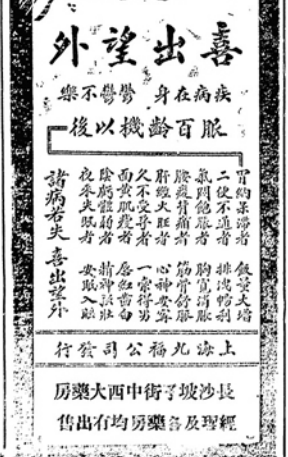 喜出望外
疾病在身 鬱鬱不樂
服百齡機以後
胃納呆滯者 飯量大增
二便不通者 排洩暢利
氣悶飽脹者 胸寬消脹
腰痠背痛者 筋骨舒服
肝經火旺者 心神安寧
久不受孕者 一索得男
面黃肌瘦者 唇紅齒白
陰虧體弱者 精神強壯
夜來失眠者 安眠入睡
諸病若失 喜出望外
上海九福公司發行
長沙坡子街中西大藥房
經理及各藥房均有出售